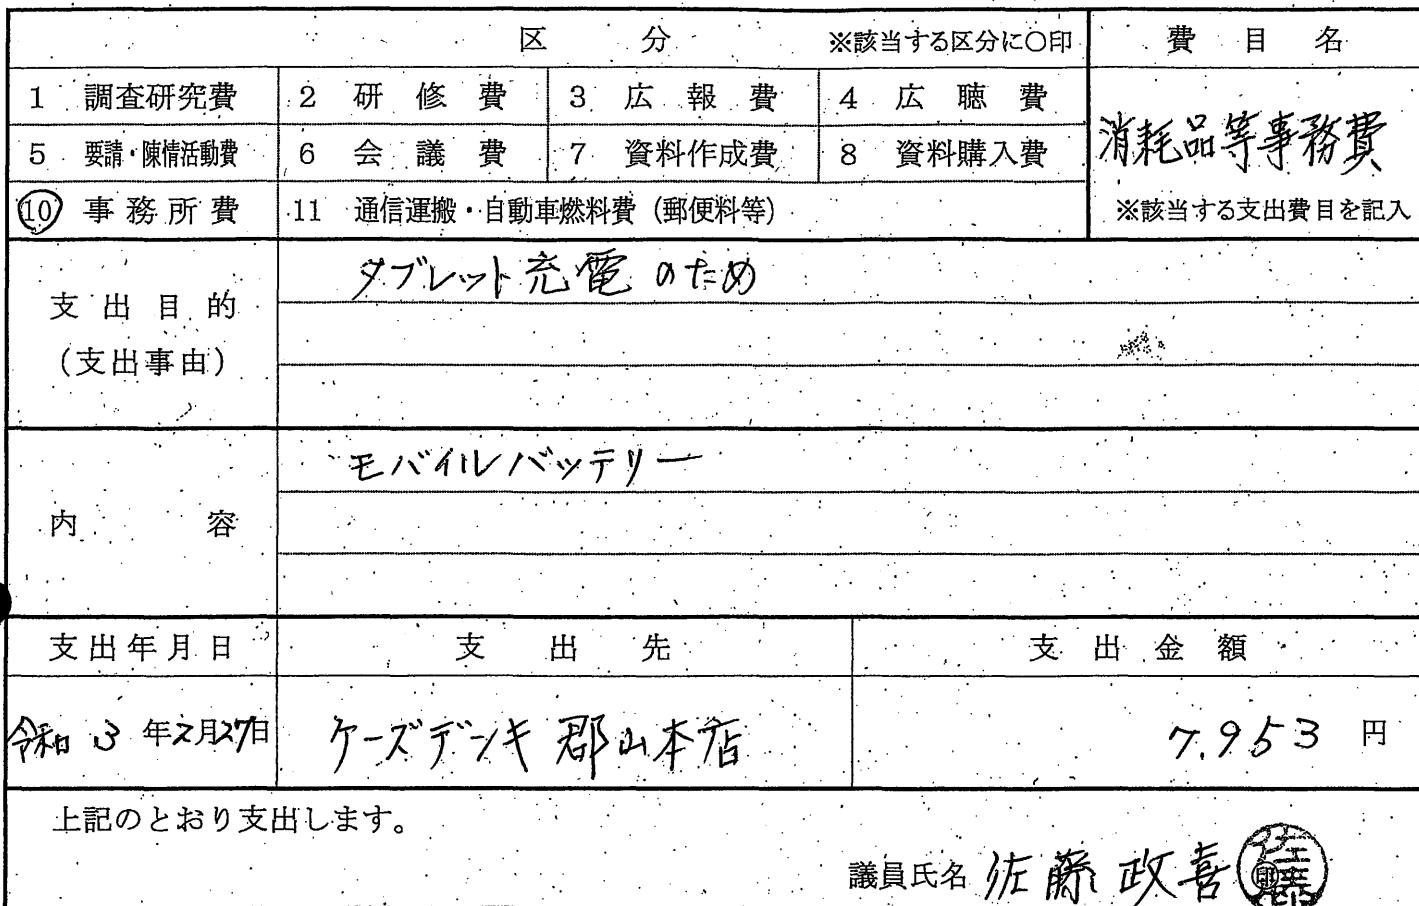 区 分 ※該当する区分に○印 費目名
1 調査研究費 2 研修費 3 広報費 4 広聴費
消耗品等事務費
5 要請・陳情活動費 6 会議費 7 資料作成費 8 資料購入費
10 事務所費 11 通信運搬・自動車燃料費(郵便料等) ※該当する支出費目を記入
タブレット充電のため
支出目的
(支出事由)
モバイルバッテリー
内容
支出年月日 支出先 支出金額
令和3年2月27日 ケーズデンキ郡山本店 7.953円
上記のとおり支出します。
議員氏名 佐藤政喜 佐藤 印